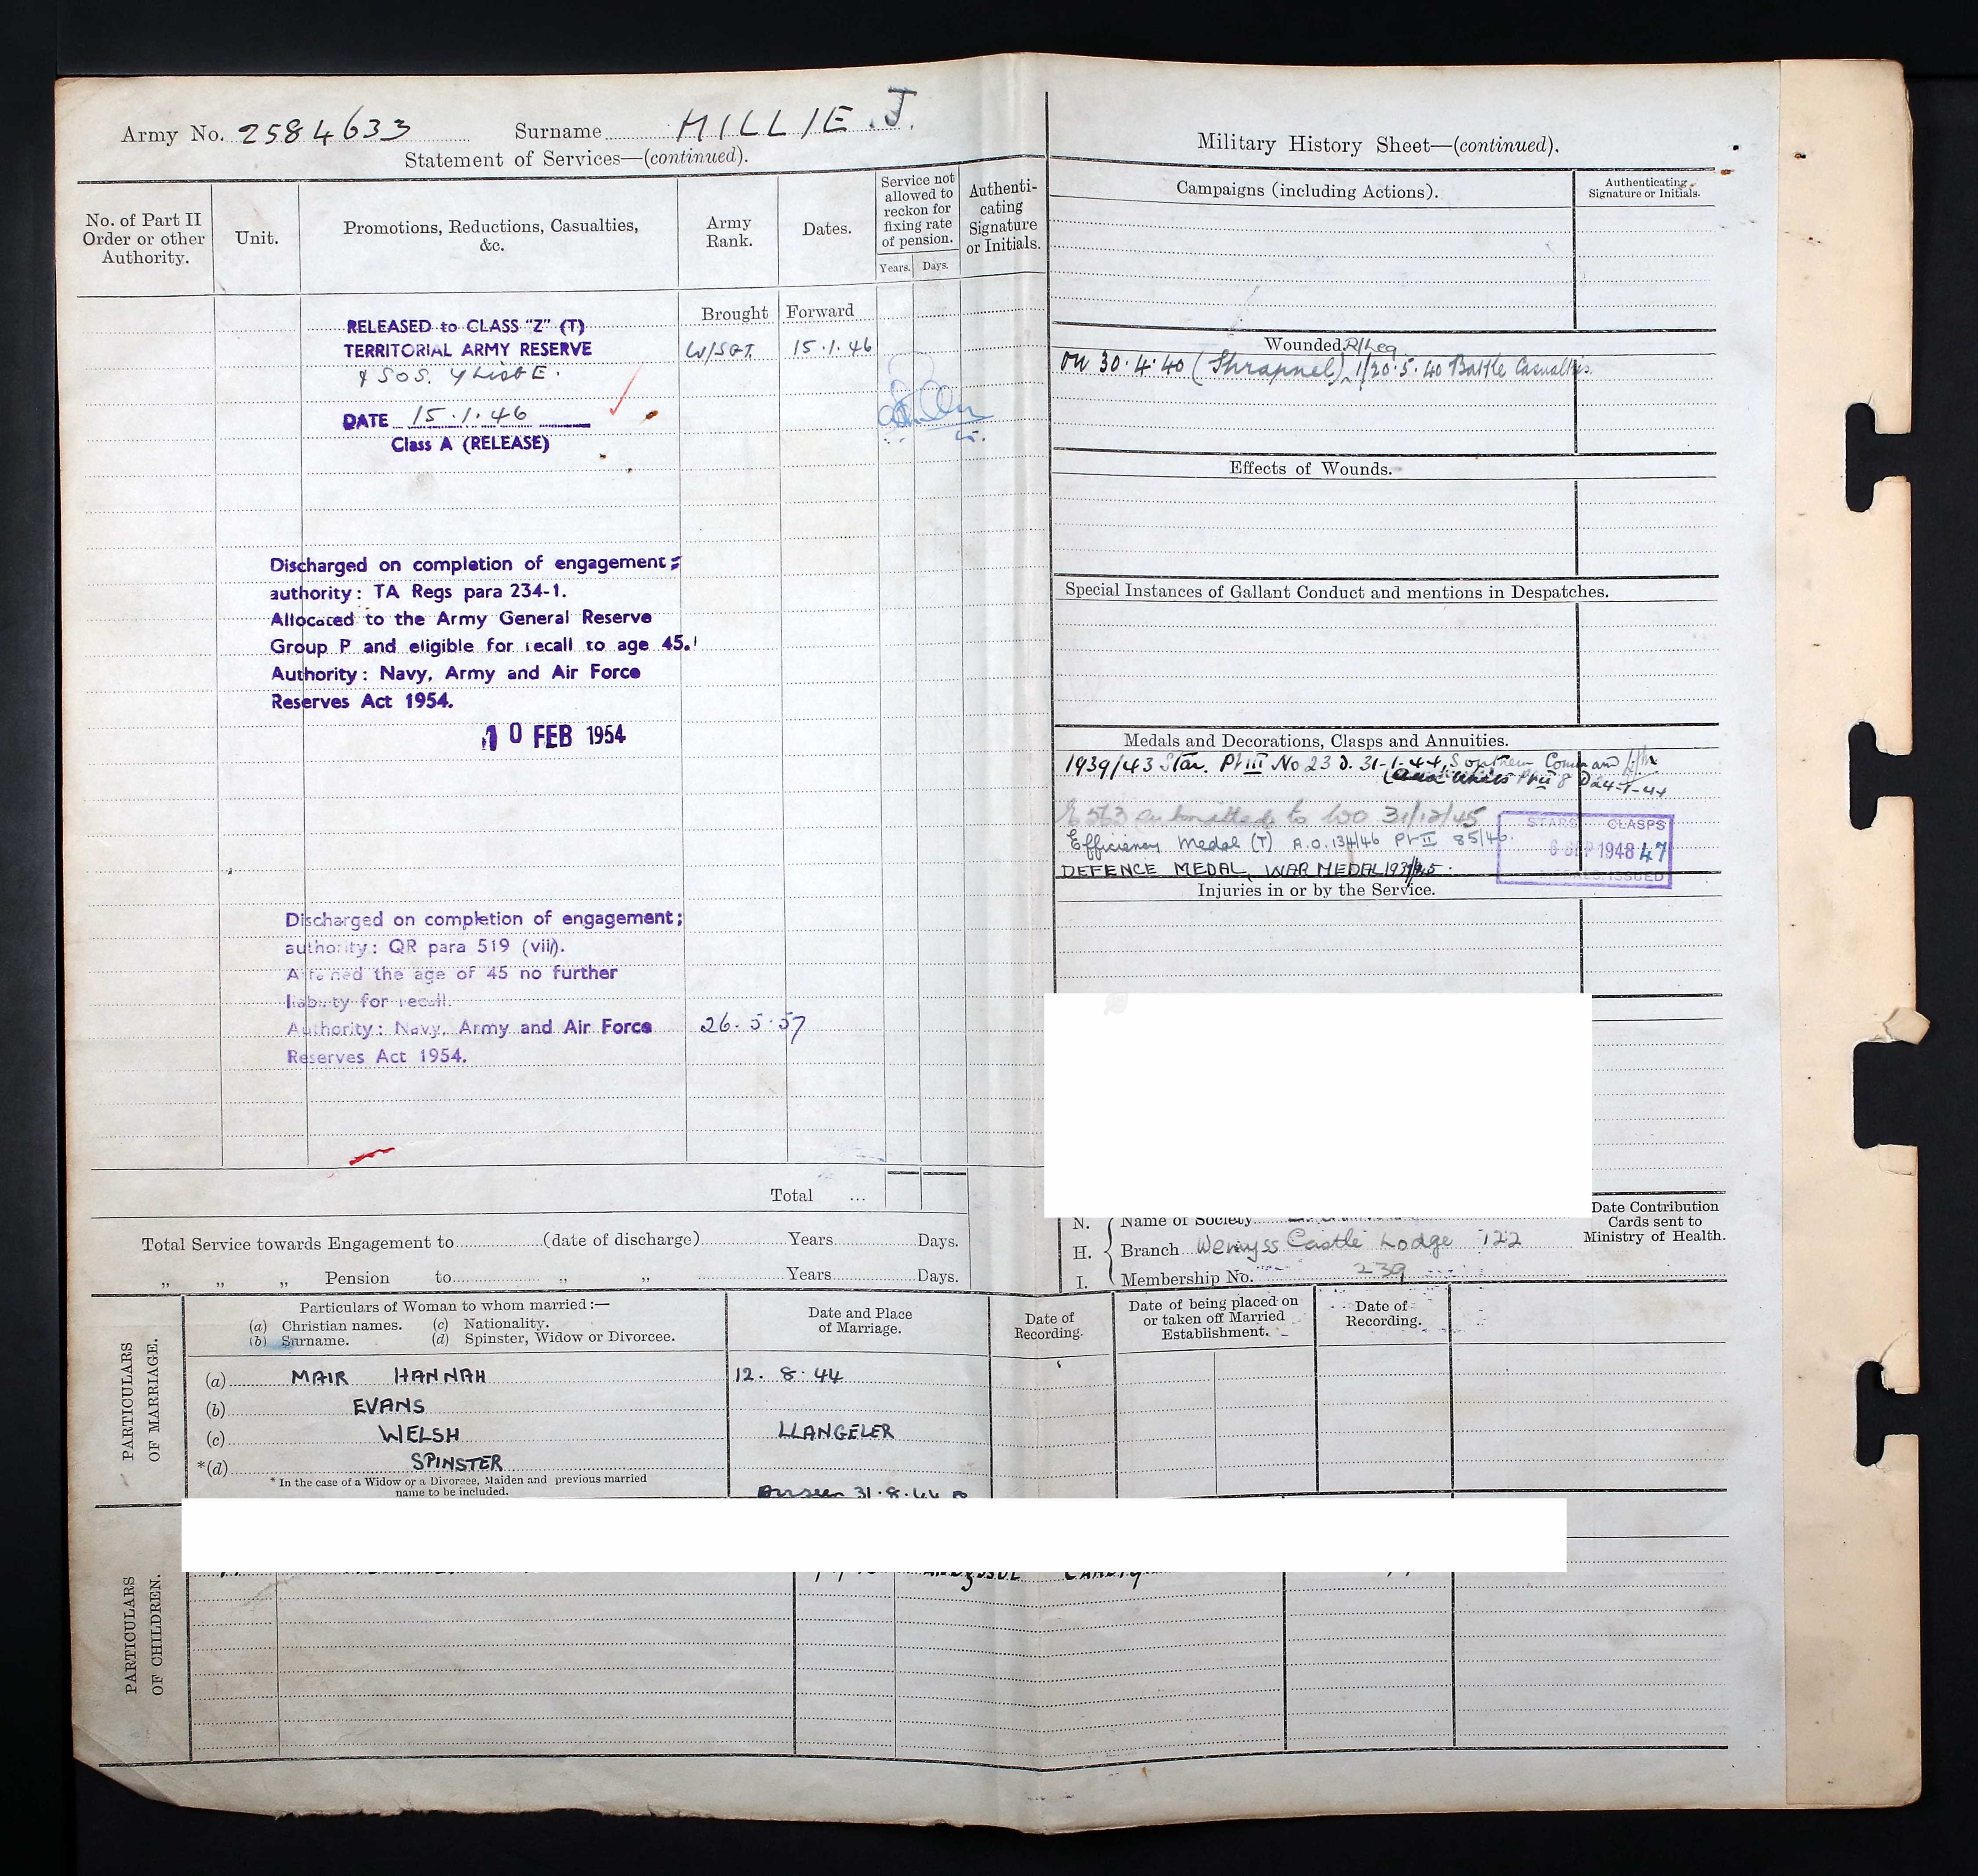 Army No. 2584633 Surname MILLIE. J.
Statement of Services—(continued).
No. of Part II Order or other Authority.
Unit.
Promotions, Reductions, Casualties, &c.
Army Rank.
Dates.
Service not allowed to reckon for fixing rate of pension.
Years. Days.
Authenti-cating Signature or Initials.
Brought Forward
RELEASED to CLASS "Z" (T)
TERRITORIAL ARMY RESERVE
W/SGT. 15.1.46
& SOS. Y List E.
DATE 15.1.46
Class A (RELEASE)
Discharged on completion of engagement;
authority: TA Regs para 234-1.
Allocated to the Army General Reserve
Group P and eligible for recall to age 45.
Authority: Navy, Army and Air Force
Reserves Act 1954.
10 FEB 1954
Discharged on completion of engagement;
authority: QR para 519 (vii).
Attained the age of 45 no further
liability for recall.
Authority: Navy, Army and Air Force 26.5.57
Reserves Act 1954.
Total ...
Total Service towards Engagement to (date of discharge) Years Days.
„ „ „ Pension to „ „ Years Days.
Military History Sheet—(continued).
Campaigns (including Actions).
Authenticating Signature or Initials.
Wounded. R/Leg
on 30.4.40 (Shrapnel) 1/20.5.40 Battle Casualties.
Effects of Wounds.
Special Instances of Gallant Conduct and mentions in Despatches.
Medals and Decorations, Clasps and Annuities.
1939/43 Star. Pt III No 23 D. 31-1-44, Southern Command
Pt II 8 D 24-1-44
submitted to WO 31/12/45
Efficiency Medal (T) A.O. 134/46 Pt II 85/46.
DEFENCE MEDAL, WAR MEDAL 1939/45.
STARS CLASPS
6 SEP 1948 47
ISSUED
Injuries in or by the Service.
N. Name of Society
H. Branch Wemyss Castle Lodge 122
I. Membership No. 239
Date Contribution Cards sent to Ministry of Health.
PARTICULARS OF MARRIAGE.
Particulars of Woman to whom married:—
(a) Christian names. (c) Nationality.
(b) Surname. (d) Spinster, Widow or Divorcee.
Date and Place of Marriage.
Date of Recording.
Date of being placed on or taken off Married Establishment.
Date of Recording.
(a) MAIR HANNAH 12.8.44
(b) EVANS
(c) WELSH LLANGELER
*(d) SPINSTER
* In the case of a Widow or a Divorcee, Maiden and previous married
name to be included.
31.8.44
PARTICULARS OF CHILDREN.